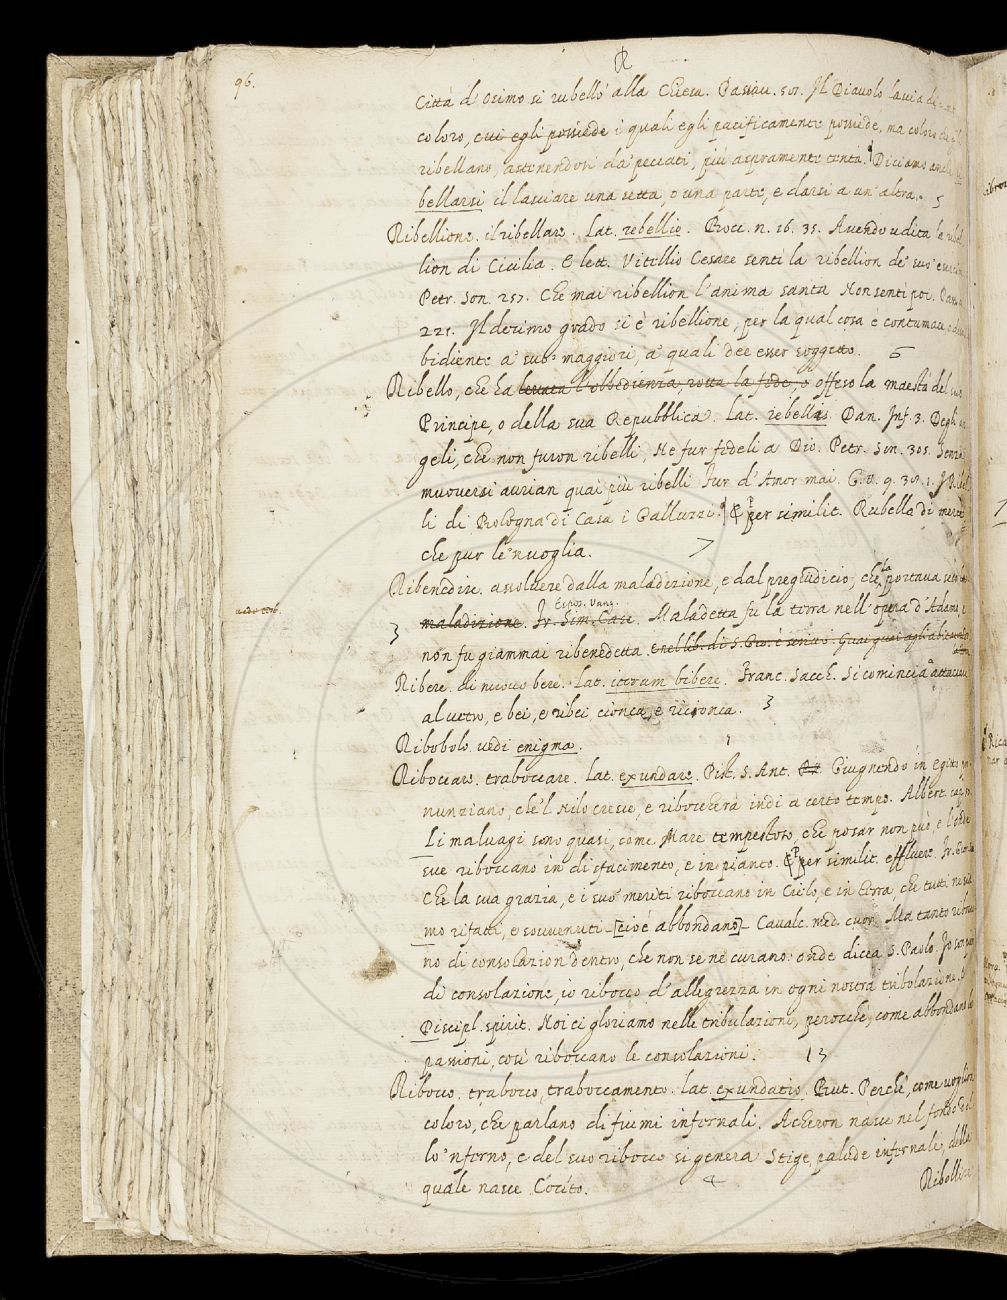 R
96.
Città d'Osimo si rubellò alla Chiesa. Passav. 501. Il Diavolo lascia di
coloro, cui egli possiede i quali egli pacificamente possiede, ma coloro che
ribellano, astenendosi da' peccati, più aspramente tenta. Diciamo anche
bellarsi il lasciare una setta, o una parte, e darsi a un altra. 5
Ribellione. il ribellare. Lat. rebellio. Bocc. n. 16. 35. Avendo udita la ribel
lion di Cicilia. E lett. Vitellio Cesare sentì la ribellion de' suoi
Petr. Son. 257. Che mai ribellion l'anima santa Non sentì poi.
221. Il decimo grado si è ribellione, per la qual cosa è contumace,
bidiente a' suo' maggiori, a' quali dee esser soggetto. 6
Ribello, che ha levata l'obbedienza rotta la fede, o offeso la maestà del suo
Principe, o della sua Repubblica. Lat. rebellis. Dan. Inf. 3. Degli an
geli, che non furon ribelli, Ne fur fedeli a Dio. Petr. Son. 305. Senza
muoversi avrian quai più ribelli Fur d'Amor mai. G. V. 9. 301. 1. I Ribel
li di Bologna di Casa i Galluzzi. E per similit. Rubella di merce
che pur le 'nvoglia. 7
Ribenedire. assolvere dalla maladizione, e dal pregiudicio, che la portava seco la
maladizione. Fr. Sim. Casc. Espos. Vang. Maladetta fu la terra nell'opera d'Adamo, e
3 non fu giammai ribenedetta. E nel lib. di S. Gio. è scritto. Guai guai agli abitanti
Ribere. di nuovo bere. Lat. iterum bibere. Franc. Sacch. Si comincia a attaccare
al vetro, e bei, e ribei cionca, e ricionca. 3
Ribobolo. vedi enigma.
1
Riboccare. traboccare. Lat. exundare. Pist. S. Ant. Giugnendo in Egitto
nunziano, che 'l Nilo cresce, e riboccherà indi a certo tempo. Albert. cap.
Li malvagi sono quasi, come Mare tempestoso, che posar non può, e l'onde
sue riboccano in disfacimento, e in pianto. E per similit. effluere. Fr. Giord.
Che la sua grazia, e i suo' meriti riboccano in Cielo, e in terra, che tutti ne sia
mo rifatti, e sovvenuti [cioè abbondano] Cavalc. med. cuor. Ma tanto ribocca
no di consolazion dentro, che non se ne curano: onde dicea S. Paolo. Io son pien
di consolazione, io ribocco d'allegrezza in ogni nostra tribolazione.
Discipl. spirit. Noi ci gloriamo nelle tribulazioni, perocchè, come abbondano le
passioni, così riboccano le consolazioni. 13
Ribocco. trabocco, traboccamento. Lat. exundatio. But. Perchè, come voglion
coloro, che parlano di fiumi infernali. Acheron nasce nel fondo del
lo 'nferno, e del suo ribocco si genera Stige, palude infernale, della
quale nasce Cocito. 4
Ribollire